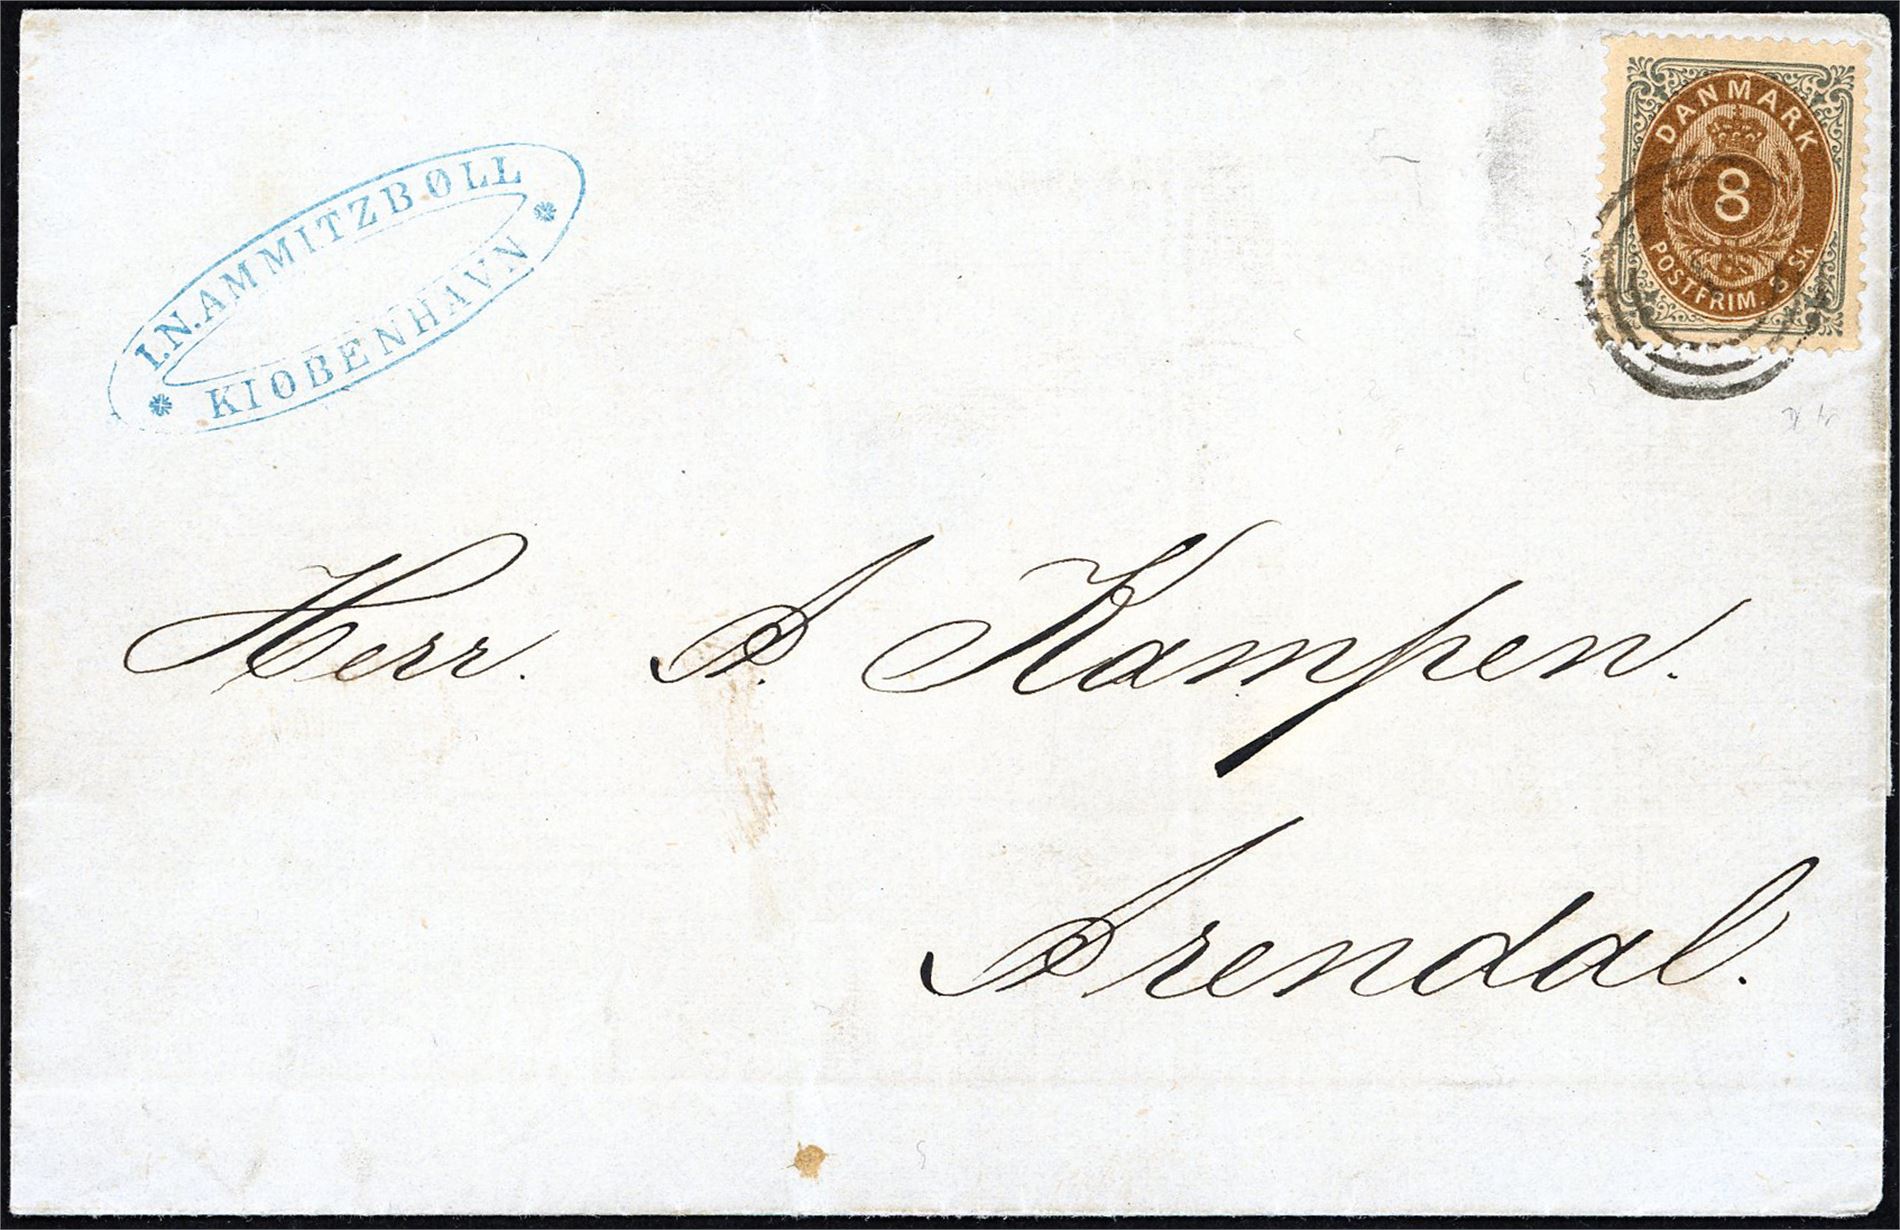 I.N. AMMITZBØLL
KIØBENHAVN
DANMARK
8
POSTFRIM. 8 SK
Herr. A. Kampen.
Arendal.